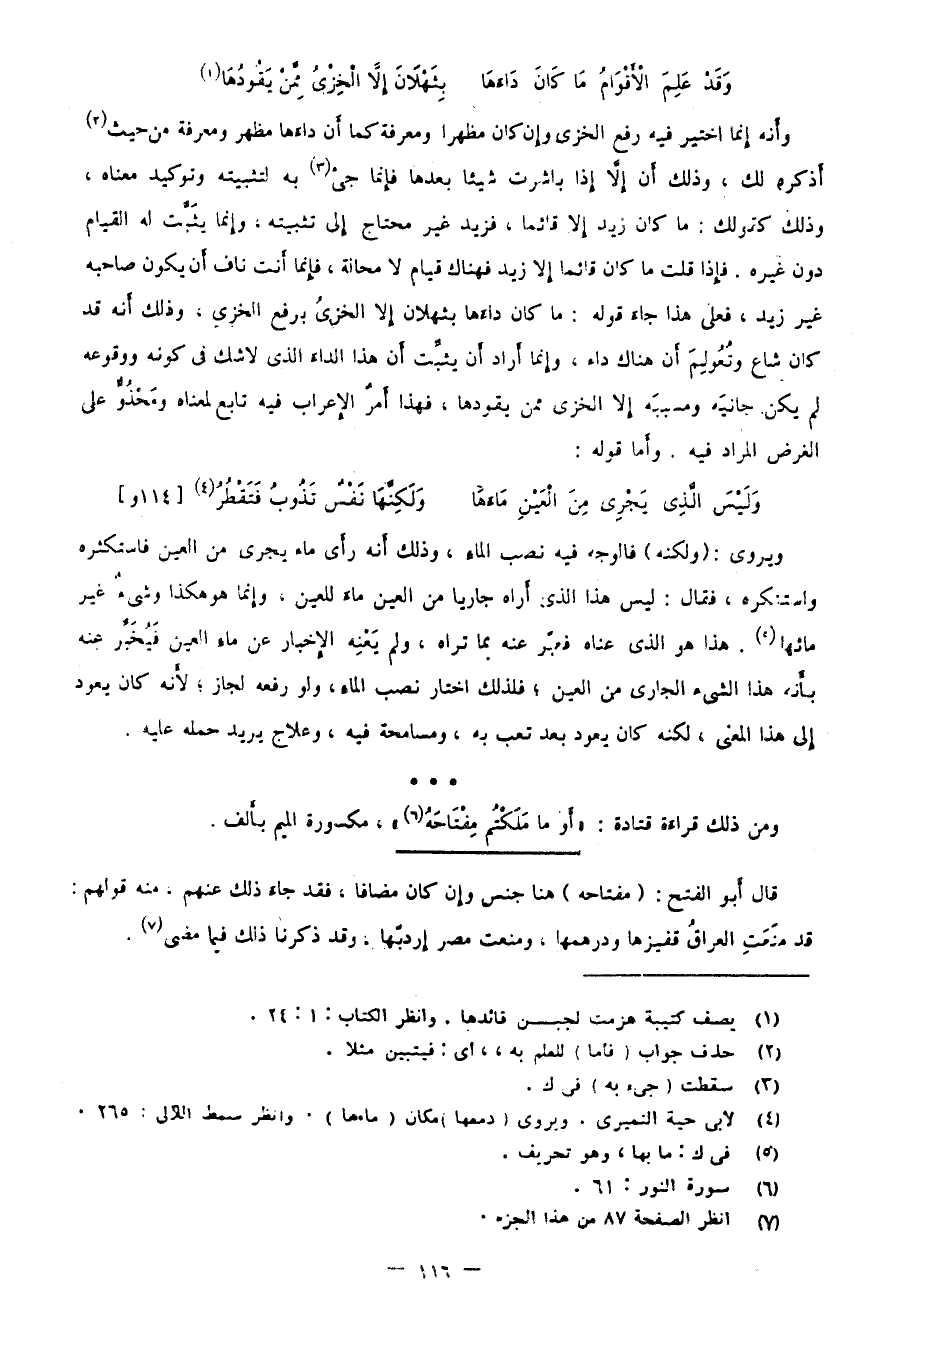 وَقَدْ عَلِمَ الْأَقْوَامُ مَا كَانَ دَاءَهَا    بِثَهْلَانَ إِلَّا الْخِزْىُ مِمَّنْ يَقُودُهَا(١)
وأنه إنما اختير فيه رفع الخزى وإن كان مظهرا ومعرفة كما أن داءها مظهر ومعرفة من حيث(٢)
أذكره لك ، وذلك أن إلَّا إذا باشرت شيئا بعدها فإنما جىْ(٣) به لتثبيته وتوكيد معناه ،
وذلك كقولك : ما كان زيد إلا قائما ، فزيد غير محتاج إلى تثبيته ، وإنما يثبَّت له القيام
دون غيره . فإذا قلت ما كان قائما إلا زيد فهناك قيام لا محالة ، فإنما أنت ناف أن يكون صاحبه
غير زيد ، فعلى هذا جاء قوله : ما كان داءها بثهلان إلا الخزىُ برفع الخزى ، وذلك أنه قد
كان شاع وتُعُولِمَ أن هناك داء ، وإنما أراد أن يثبَّت أن هذا الداء الذى لاشك فى كونه ووقوعه
لم يكن جانيَه ومسببَه إلا الخزى ممن يقودها ، فهذا أمرُ الإعراب فيه تابع لمعناه ومَحْذُوٌّ على
الغرض المراد فيه . وأما قوله :
وَلَيْسَ الَّذِى يَجْرِى مِنَ الْعَيْنِ مَاءَهَا    وَلَكِنَّهَا نَفْسٌ تَذُوبُ فَتَقْطُرُ(٤) [١١٤و]
ويروى : (ولكنه) فالوجه فيه نصب الماء ، وذلك أنه رأى ماء يجرى من العين فاستكثره
واستنكره ، فقال : ليس هذا الذى أراه جاريا من العين ماء للعين ، وإنما هو هكذا وشىءٌ غير
مائها(٥) . هذا هو الذى عناه فعبّر عنه بما تراه ، ولم يَعْنِه الإخبار عن ماء العين فَيُخَبَّرَ عنه
بأنه هذا الشىء الجارى من العين ؛ فلذلك اختار نصب الماء ، ولو رفعه لجاز ؛ لأنه كان يعود
إلى هذا المعنى ، لكنه كان يعود بعد تعب به ، ومسامحة فيه ، وعلاج يريد حمله عليه .
• • •
ومن ذلك قراءة قتادة : «أَو ما مَلَكْتُم مِفْتَاحَهُ(٦)» ، مكسورة الميم بألف .
قال أبو الفتح : ( مفتاحه ) هنا جنس وإن كان مضافا ، فقد جاء ذلك عنهم . منه قولهم :
قد منَعَتِ العراقُ قفيزها ودرهمها ، ومنعت مصر إردبّها ، وقد ذكرنا ذلك فيما مضى(٧) .
(١) يصف كتيبة هزمت لجبن قائدها . وانظر الكتاب : ١ : ٢٤ .
(٢) حذف جواب ( فأما ) للعلم به ، ، أى : فيتبين مثلا .
(٣) سقطت ( جىء به ) فى ك .
(٤) لأبى حية النميرى . ويروى ( دمعها )مكان ( ماءها ) . وانظر سمط اللآلى : ٢٦٥ .
(٥) فى ك : ما بها ، وهو تحريف .
(٦) سورة النور : ٦١ .
(٧) انظر الصفحة ٨٧ من هذا الجزء .
— ١١٦ —